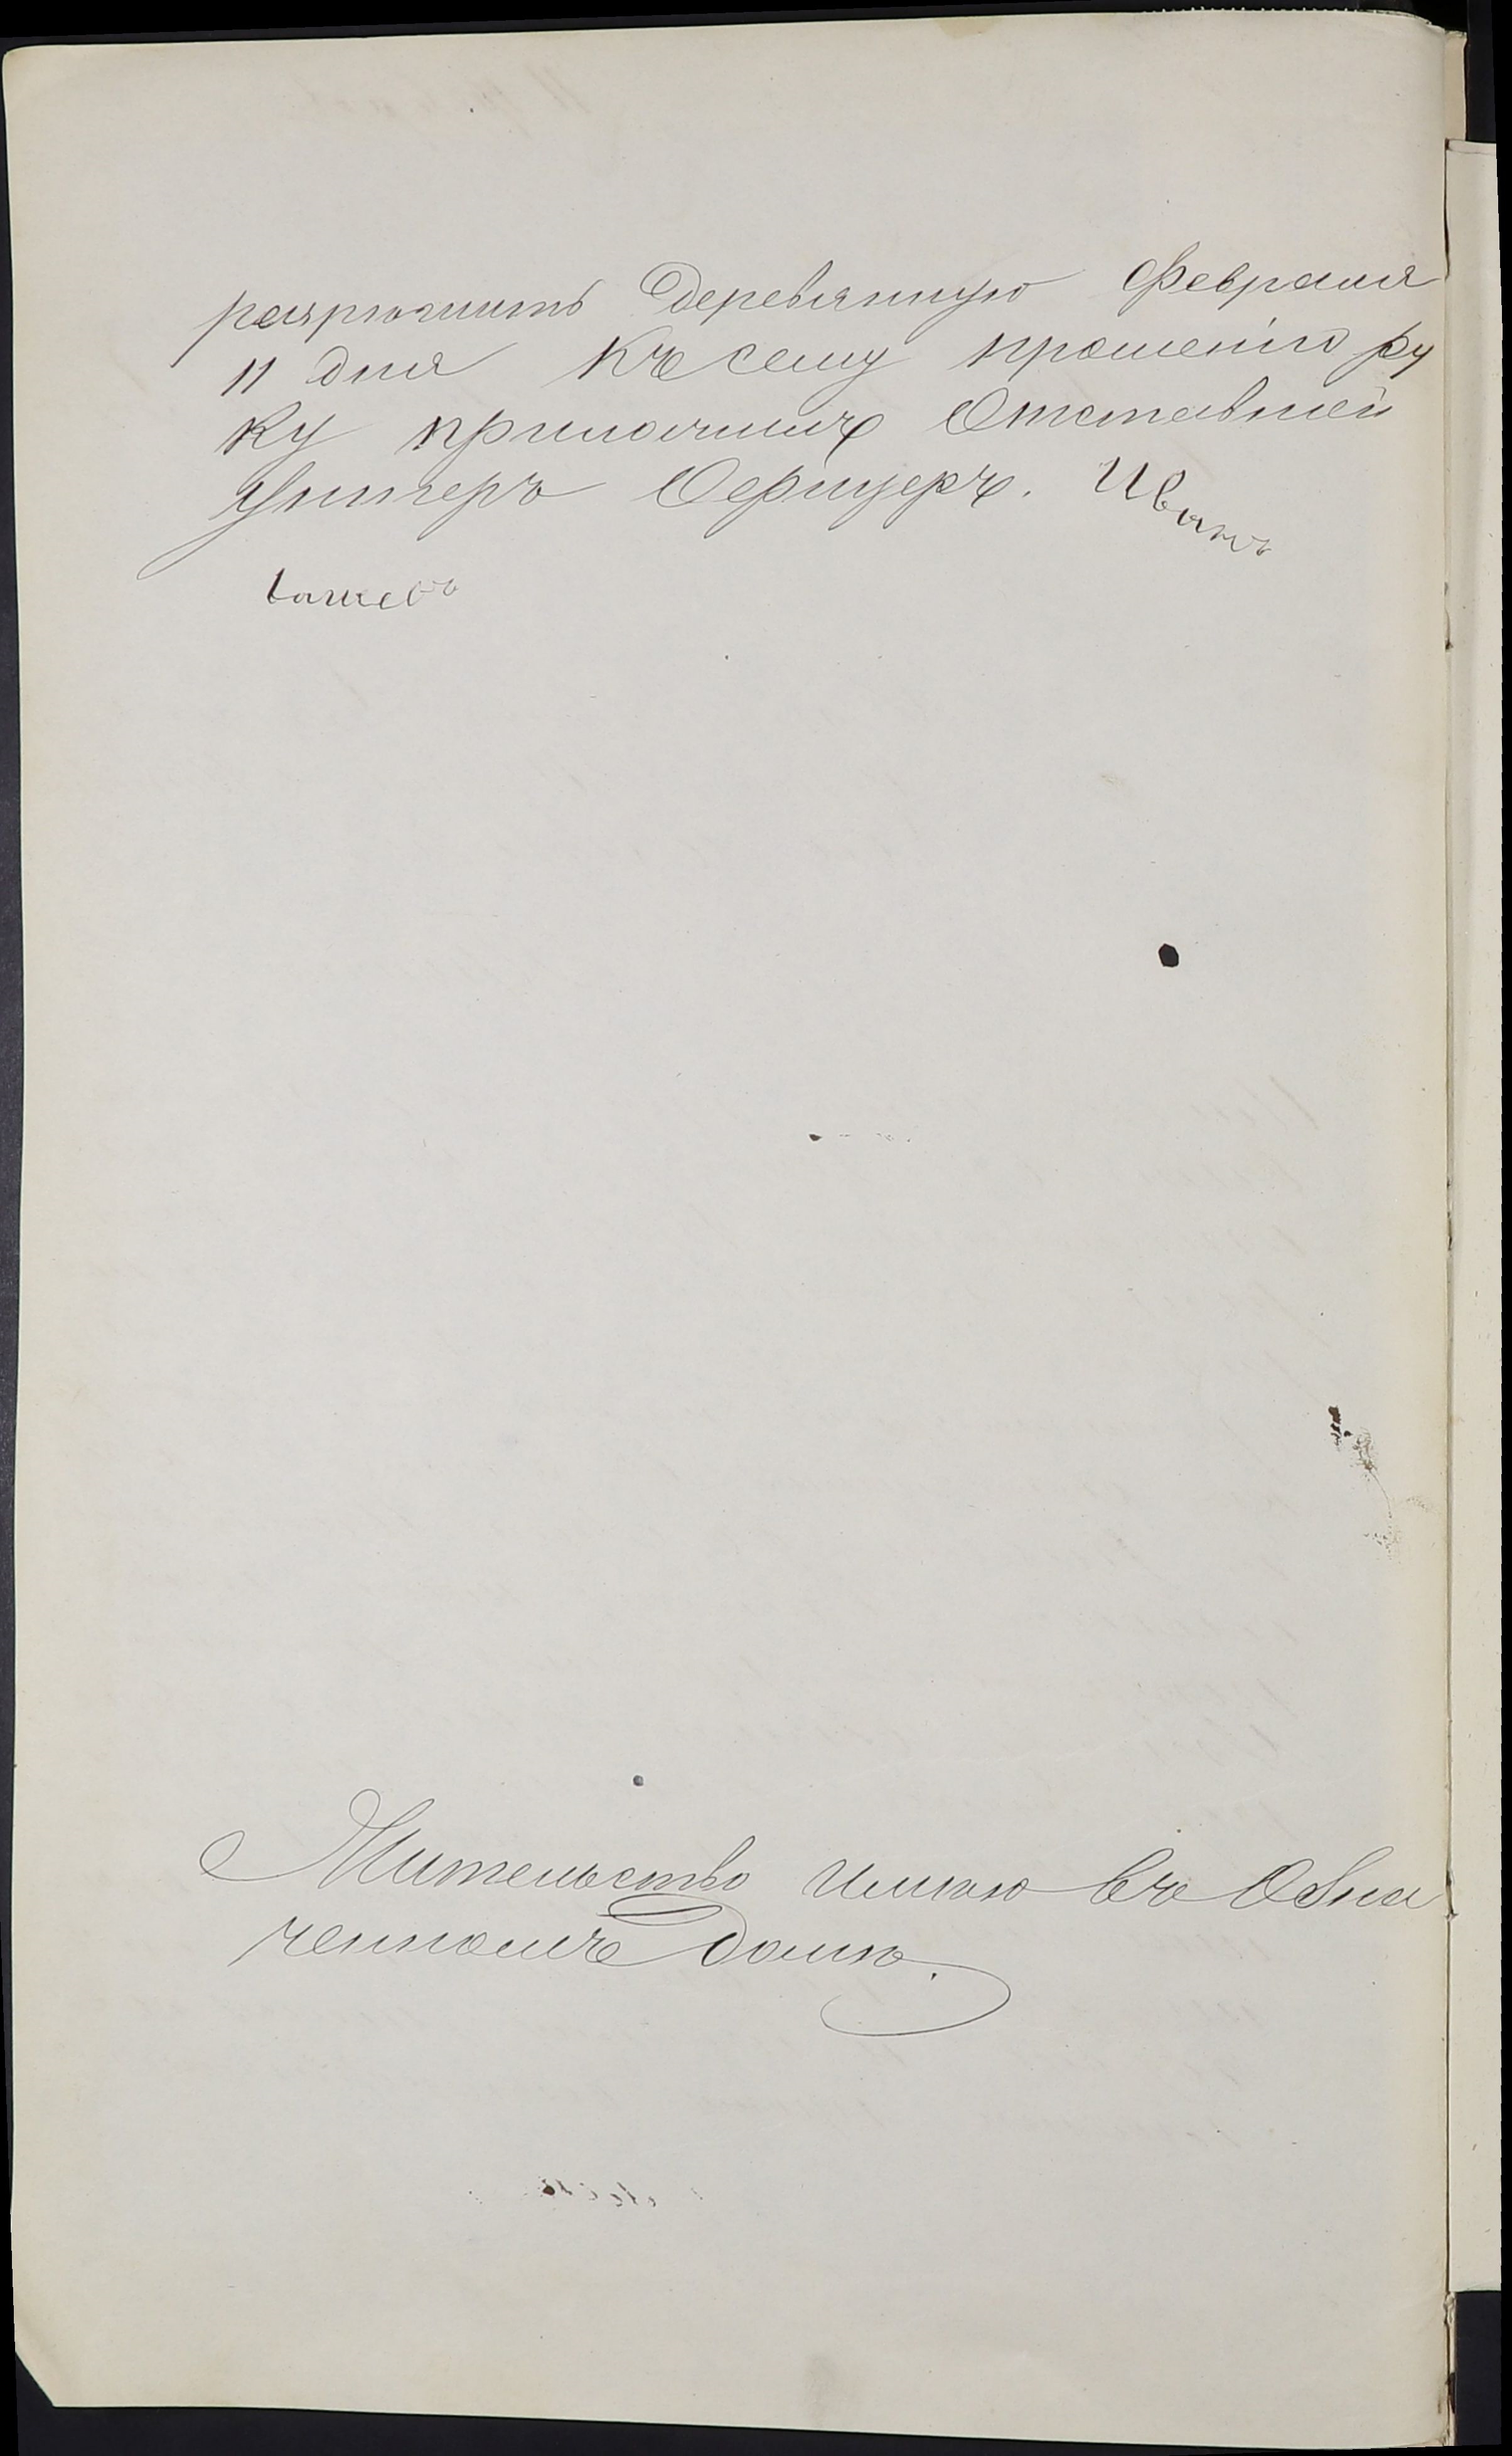 разрюшить Деревянную Февраля
11 дня Къ сему прошению ру
ку приложилъ Отставней
Унтеръ Оефицеръ. Иванъ
Жительство Имѣю въ Обна
ченномъ Домѣ.